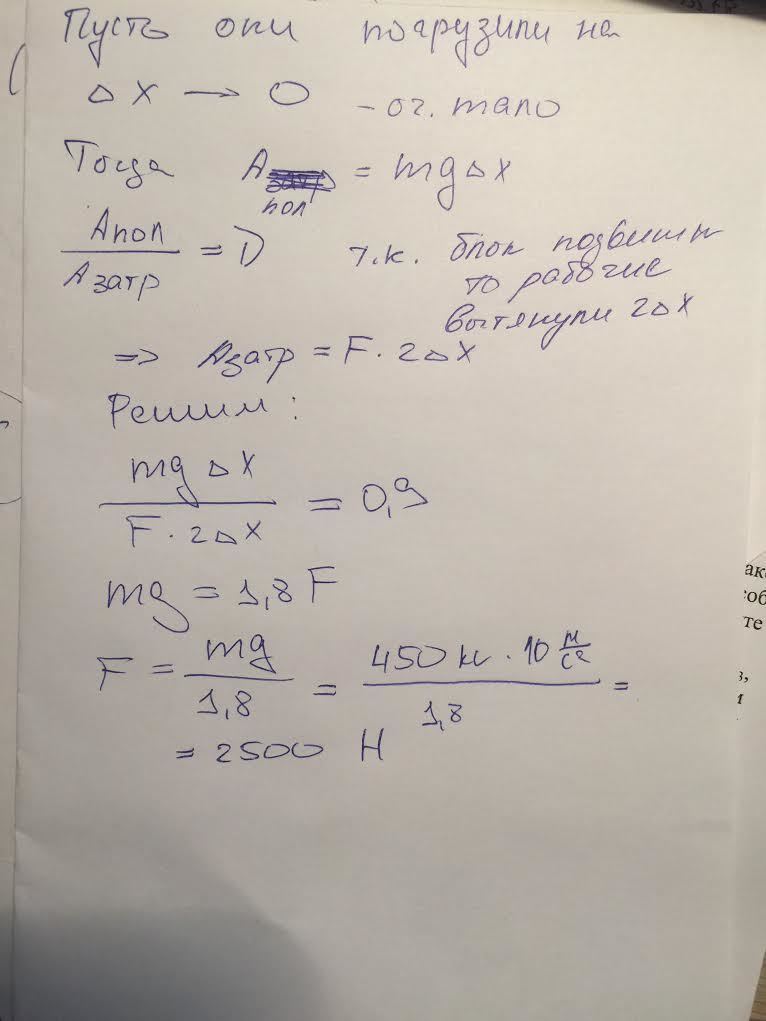 Пусть они погрузили на
Δx → 0 - оч. мало
Тогда A пол = mgΔx
Aпол / Aзатр = η т.к. блок подвешн
то рабочие
вытянули 2Δx
=> Aзатр = F · 2Δx
Решим:
mgΔx / F · 2Δx = 0,9
mg = 1,8 F
F = mg / 1,8 = 450 кг · 10 м/с² / 1,8 =
= 2500 Н
ак
соб
те
в,